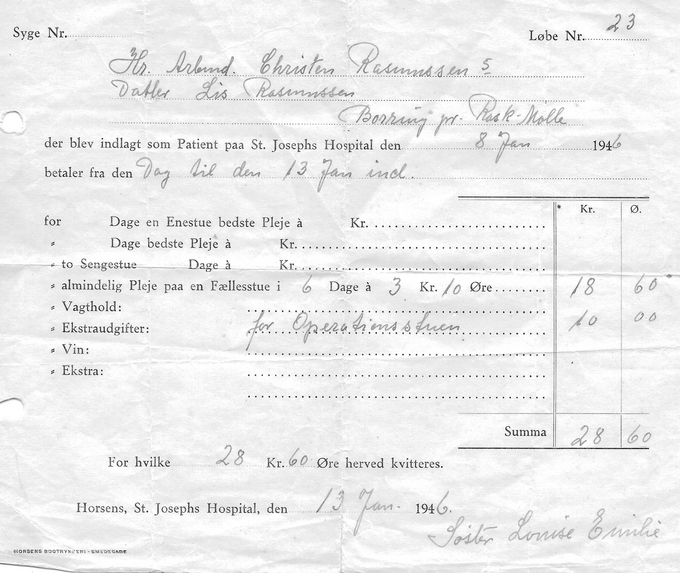 Syge Nr. Løbe Nr. 23
Hr. Arbmd. Christen Rasmussen s
Datter Lis Rasmussen
Borring pr. Rask-Mølle
der blev indlagt som Patient paa St. Josephs Hospital den 8 Jan 1946
betaler fra den Dag til den 13 Jan incl.
Kr. Ø.
for Dage en Enestue bedste Pleje à Kr.
" Dage bedste Pleje à Kr.
" to Sengestue Dage à Kr.
" almindelig Pleje paa en Fællesstue i 6 Dage à 3 Kr. 10 Øre 18 60
" Vagthold:
" Ekstraudgifter: for Operationsstuen 10 00
" Vin:
" Ekstra:
Summa 28 60
For hvilke 28 Kr. 60 Øre herved kvitteres.
Horsens, St. Josephs Hospital, den 13 Jan. 1946.
Søster Louise Emilie
HORSENS BOGTRYKKERI - SMEDEGADE